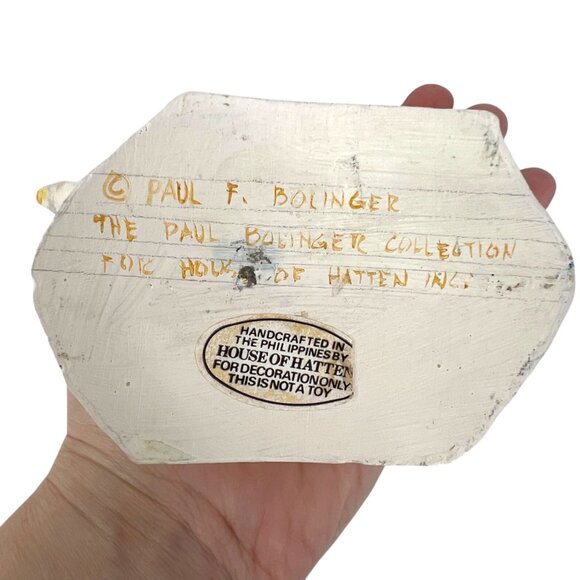 © PAUL F. BOLINGER
THE PAUL BOLINGER COLLECTION
FOR HOUSE OF HATTEN INC.
HANDCRAFTED IN
THE PHILIPPINES BY
HOUSE OF HATTEN
FOR DECORATION ONLY
THIS IS NOT A TOY